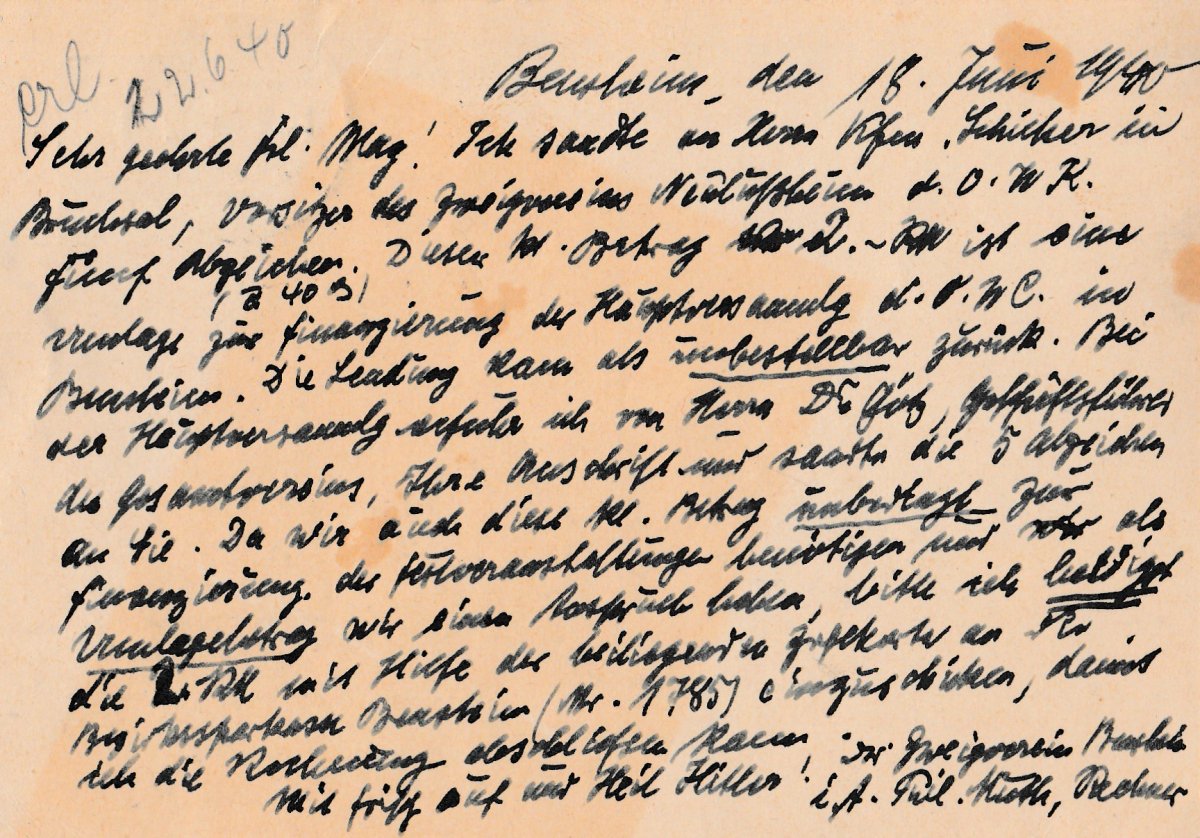 erl. 22.6.40
Bensheim, den 18. Juni 1940
Sehr geehrte Frl. May! Ich sandte an Herrn Kfm. Schücker in
Bruchsal, Vorsitzer des Zweigvereins Neulußheim d. O. W K.
fünf Abzeichen. Dieser kl. Betrag 2.- RM ist eine
(a 40 ₰)
Umlage zur Finanzierung der Hauptversammlg d. O. W C. in
Bensheim. Die Sendung kam als unbestellbar zurück. Bei
der Hauptversammlg erfuhr ich von Herrn Dr Götz, Geschäftsführer
des Gesamtvereins, Ihre Anschrift und sandte die 5 Abzeichen
an Sie. Da wir auch diese kl. Betrag unbedingt zur
Finanzierung der Festveranstaltungen benötigen und wir als
Umlagebetrag wir einen Anspruch haben, bitte ich baldigst
die 2.- RM mit Hilfe der beiliegenden Zahlkarte an
Bezirkssparkasse Bensheim (Nr. 1785) einzuschicken, damit
ich die Rechnung abschließen kann. Der Zweigverein Bensheim
Mit frisch auf und Heil Hitler! i. A. Phil. Muth, Rechner